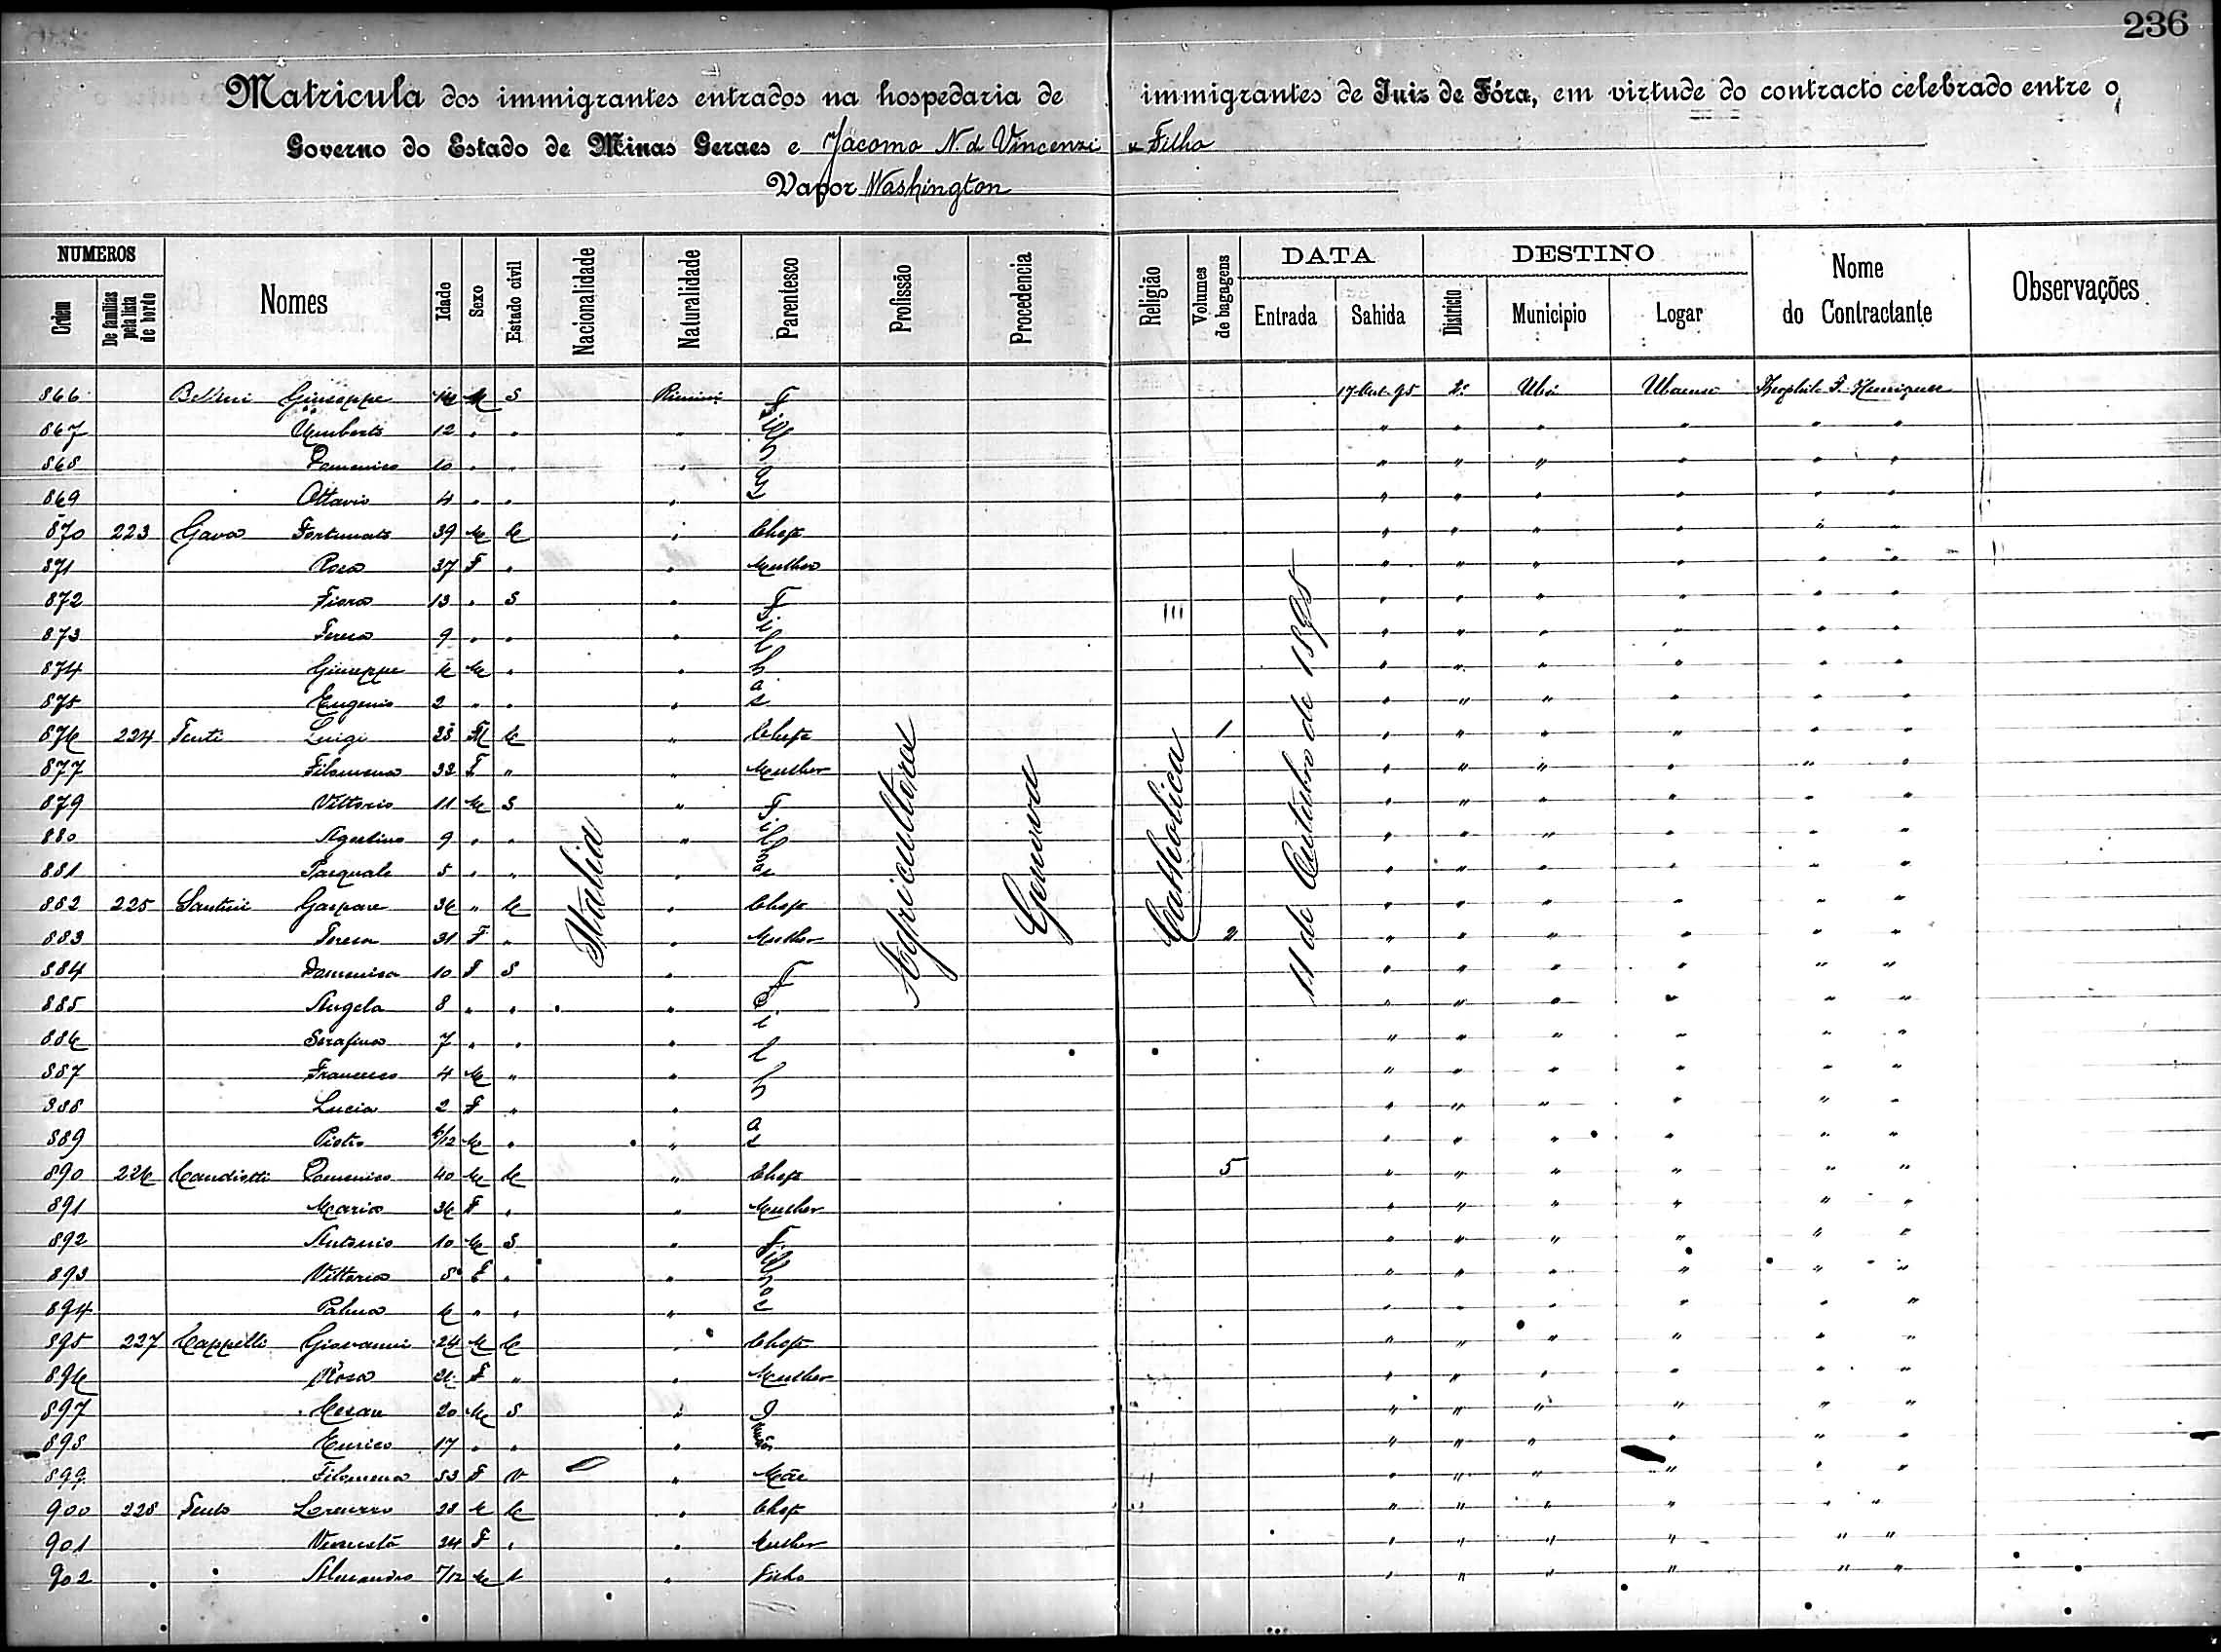 236
Matricula dos immigrantes entrados na hospedaria de immigrantes de Juiz de Fóra, em virtude do contracto celebrado entre o
Governo do Estado de Minas Geraes e Jacomo N. de Vincenzi & Filho
Vapor Washington
NUMEROS
Ordem
De familias pela lista de bordo
Nomes
Idade
Sexo
Estado civil
Nacionalidade
Naturalidade
Parentesco
Profissão
Procedencia
Religião
Volumes de bagagens
DATA
Entrada
Sahida
DESTINO
Districto
Municipio
Logar
Nome do Contractante
Observações
Italia
Agricultora
Genova
Catholica
11 de Outubro de 1895
866 Bellini Giuseppe 14 M S Rimini 17 Out. 95 2º Ubá Ubaense
867 Umberto 12 " " "
868 Domenico 10 " " "
869 Ottavio 4 " " "
Filhos
870 223 Gava Fortunato 39 M C " Chefe
871 Rosa 37 F " " Mulher
872 Fiora 13 " S "
873 Teresa 9 " " "
874 Giuseppe 6 M " "
875 Eugenio 2 " " "
Filhas
876 224 Tenti Luigi 38 M C " Chefe 1
877 Filomena 33 F " " Mulher
879 Vittorio 11 M S "
880 Agostino 9 " " "
881 Pasquale 5 " " "
Filhas
882 225 Santini Gaspare 36 " C " Chefe
883 Teresa 31 F " " Mulher 2
884 Domenica 10 F S "
885 Angela 8 " " "
886 Serafina 7 " " "
887 Francesco 4 M " "
888 Lucia 2 F " "
889 Pietro 6/12 M " "
Filhas
890 226 Candiotti Domenico 40 M C " Chefe 5
891 Maria 36 F " " Mulher
892 Antonio 10 M S "
893 Vittoria 8 F " "
894 Palma 6 " " "
Filhos
895 227 Cappelli Giovanni 24 M C " Chefe
896 Rosa 26 F " " Mulher
897 Cesare 20 M S "
898 Enrico 17 " " "
Irmãos
899 Filomena 53 F V " Mãe
900 228 Lorenzo 28 M C " Chefe
901 24 F " " Mulher
902 7/12 M " Filho